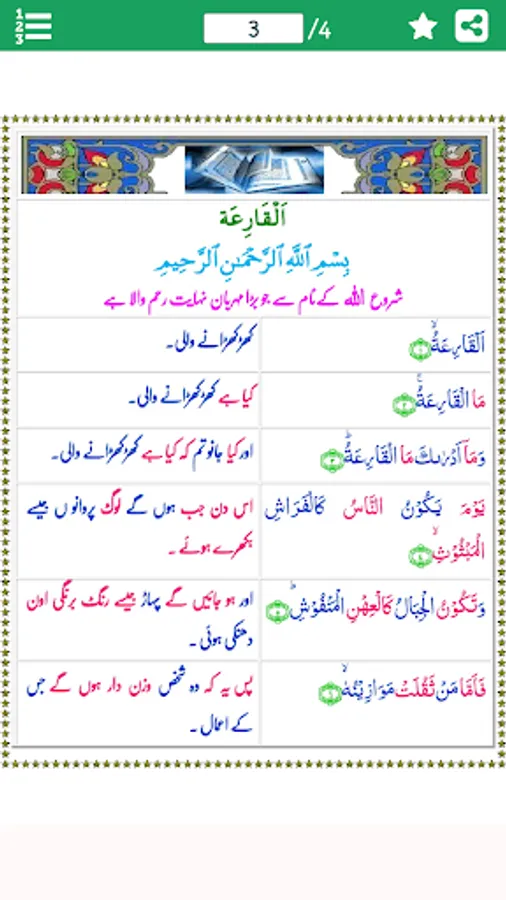 1
2
3
3 /4
اَلْقَارِعَة
بِسْمِ ٱللَّهِ ٱلرَّحْمَـٰنِ ٱلرَّحِيمِ
شروع اللہ کے نام سے جو بڑا مہربان نہایت رحم والا ہے
اَلْقَارِعَةُۙ ۱
کھڑکھڑانے والی۔
مَا الْقَارِعَةُۚ ۲
کیا ہے کھڑکھڑانے والی۔
وَمَاۤ اَدْرٰىكَ مَا الْقَارِعَةُؕ ۳
اور کیا جانو تم کہ کیا ہے کھڑکھڑانے والی۔
يَوْمَ يَكُوْنُ النَّاسُ كَالْفَرَاشِ
الْمَبْثُوْثِۙ ۴
اس دن جب ہوں گے لوگ پروانو ں جیسے
بکھرے ہوئے ۔
وَتَكُوْنُ الْجِبَالُ كَالْعِهْنِ الْمَنْفُوْشِؕ ۵
اور ہو جائیں گے پہاڑ جیسے رنگ برنگی اون
دھنکی ہوئی ۔
فَاَمَّا مَنْ ثَقُلَتْ مَوَازِيْنُهٗۙ ۶
پس یہ کہ وہ شخص وزن دار ہوں گے جس
کے اعمال ۔